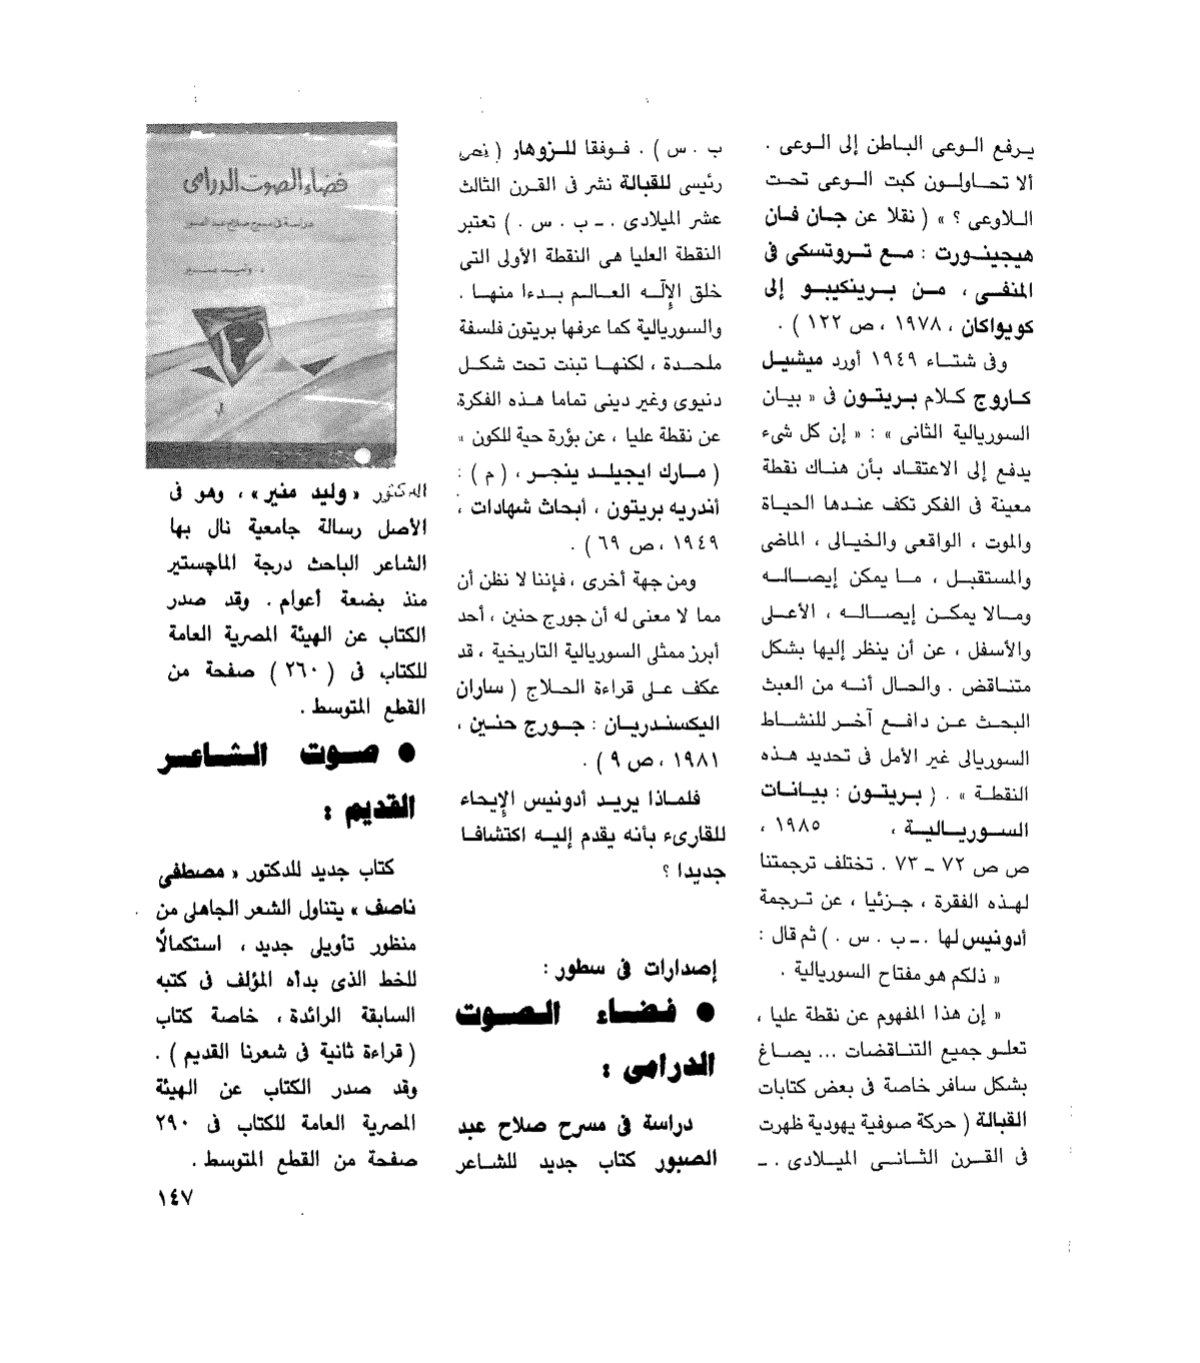 يرفع الوعى الباطن إلى الوعى .
ألا تحاولون كبت الوعى تحت
اللاوعى ؟ » ( نقلا عن جان فان
هيجينورت : مع تروتسكى فى
المنفى ، من برينكيبو إلى
كويواكان ، ١٩٧٨ ، ص ١٢٢ ) .
وفى شتاء ١٩٤٩ أورد ميشيل
كاروج كلام بريتون فى « بيان
السوريالية الثانى » : « إن كل شىء
يدفع إلى الاعتقاد بأن هناك نقطة
معينة فى الفكر تكف عندها الحياة
والموت ، الواقعى والخيالى ، الماضى
والمستقبل ، ما يمكن إيصاله
ومالا يمكن إيصاله ، الأعلى
والأسفل ، عن أن ينظر إليها بشكل
متناقض . والحال أنه من العبث
البحث عن دافع آخر للنشاط
السوريالى غير الأمل فى تحديد هذه
النقطة » . ( بريتون : بيانات
السوريالية ، ١٩٨٥ ،
ص ص ٧٢ ـ ٧٣ . تختلف ترجمتنا
لهذه الفقرة ، جزئيا ، عن ترجمة
أدونيس لها . ـ ب . س . ) ثم قال :
« ذلكم هو مفتاح السوريالية .
« إن هذا المفهوم عن نقطة عليا ،
تعلو جميع التناقضات ... يصاغ
بشكل سافر خاصة فى بعض كتابات
القبالة ( حركة صوفية يهودية ظهرت
فى القرن الثانى الميلادى . ـ
ب . س ) . فوفقا للزوهار ( نص
رئيسى للقبالة نشر فى القرن الثالث
عشر الميلادى . ـ ب . س . ) تعتبر
النقطة العليا هى النقطة الأولى التى
خلق الإلّه العالم بدءا منها .
والسوريالية كما عرفها بريتون فلسفة
ملحدة ، لكنها تبنت تحت شكل
دنيوى وغير دينى تماما هذه الفكرة
عن نقطة عليا ، عن بؤرة حية للكون »
( مارك ايجيلد ينجر ، ( م ) :
أندريه بريتون ، أبحاث شهادات ،
١٩٤٩ ، ص ٦٩ ) .
ومن جهة أخرى ، فإننا لا نظن أن
مما لا معنى له أن جورج حنين ، أحد
أبرز ممثلى السوريالية التاريخية ، قد
عكف على قراءة الحلاج ( ساران
اليكسندريان : جورج حنين ،
١٩٨١ ، ص ٩ ) .
فلماذا يريد أدونيس الإيحاء
للقارىء بأنه يقدم إليه اكتشافا
جديدا ؟
إصدارات فى سطور :
● فضاء الصوت
الدرامى :
دراسة فى مسرح صلاح عبد
الصبور كتاب جديد للشاعر
فضاء الصوت الدرامى
دراسة فى مسرح صلاح عبد الصبور
د. وليد منير
الدكتور « وليد منير » ، وهو فى
الأصل رسالة جامعية نال بها
الشاعر الباحث درجة الماچستير
منذ بضعة أعوام . وقد صدر
الكتاب عن الهيئة المصرية العامة
للكتاب فى ( ٢٦٠ ) صفحة من
القطع المتوسط .
● صوت الشاعر
القديم :
كتاب جديد للدكتور « مصطفى
ناصف » يتناول الشعر الجاهلى من
منظور تأويلى جديد ، استكمالاً
للخط الذى بدأه المؤلف فى كتبه
السابقة الرائدة ، خاصة كتاب
( قراءة ثانية فى شعرنا القديم ) .
وقد صدر الكتاب عن الهيئة
المصرية العامة للكتاب فى ٢٩٠
صفحة من القطع المتوسط .
١٤٧